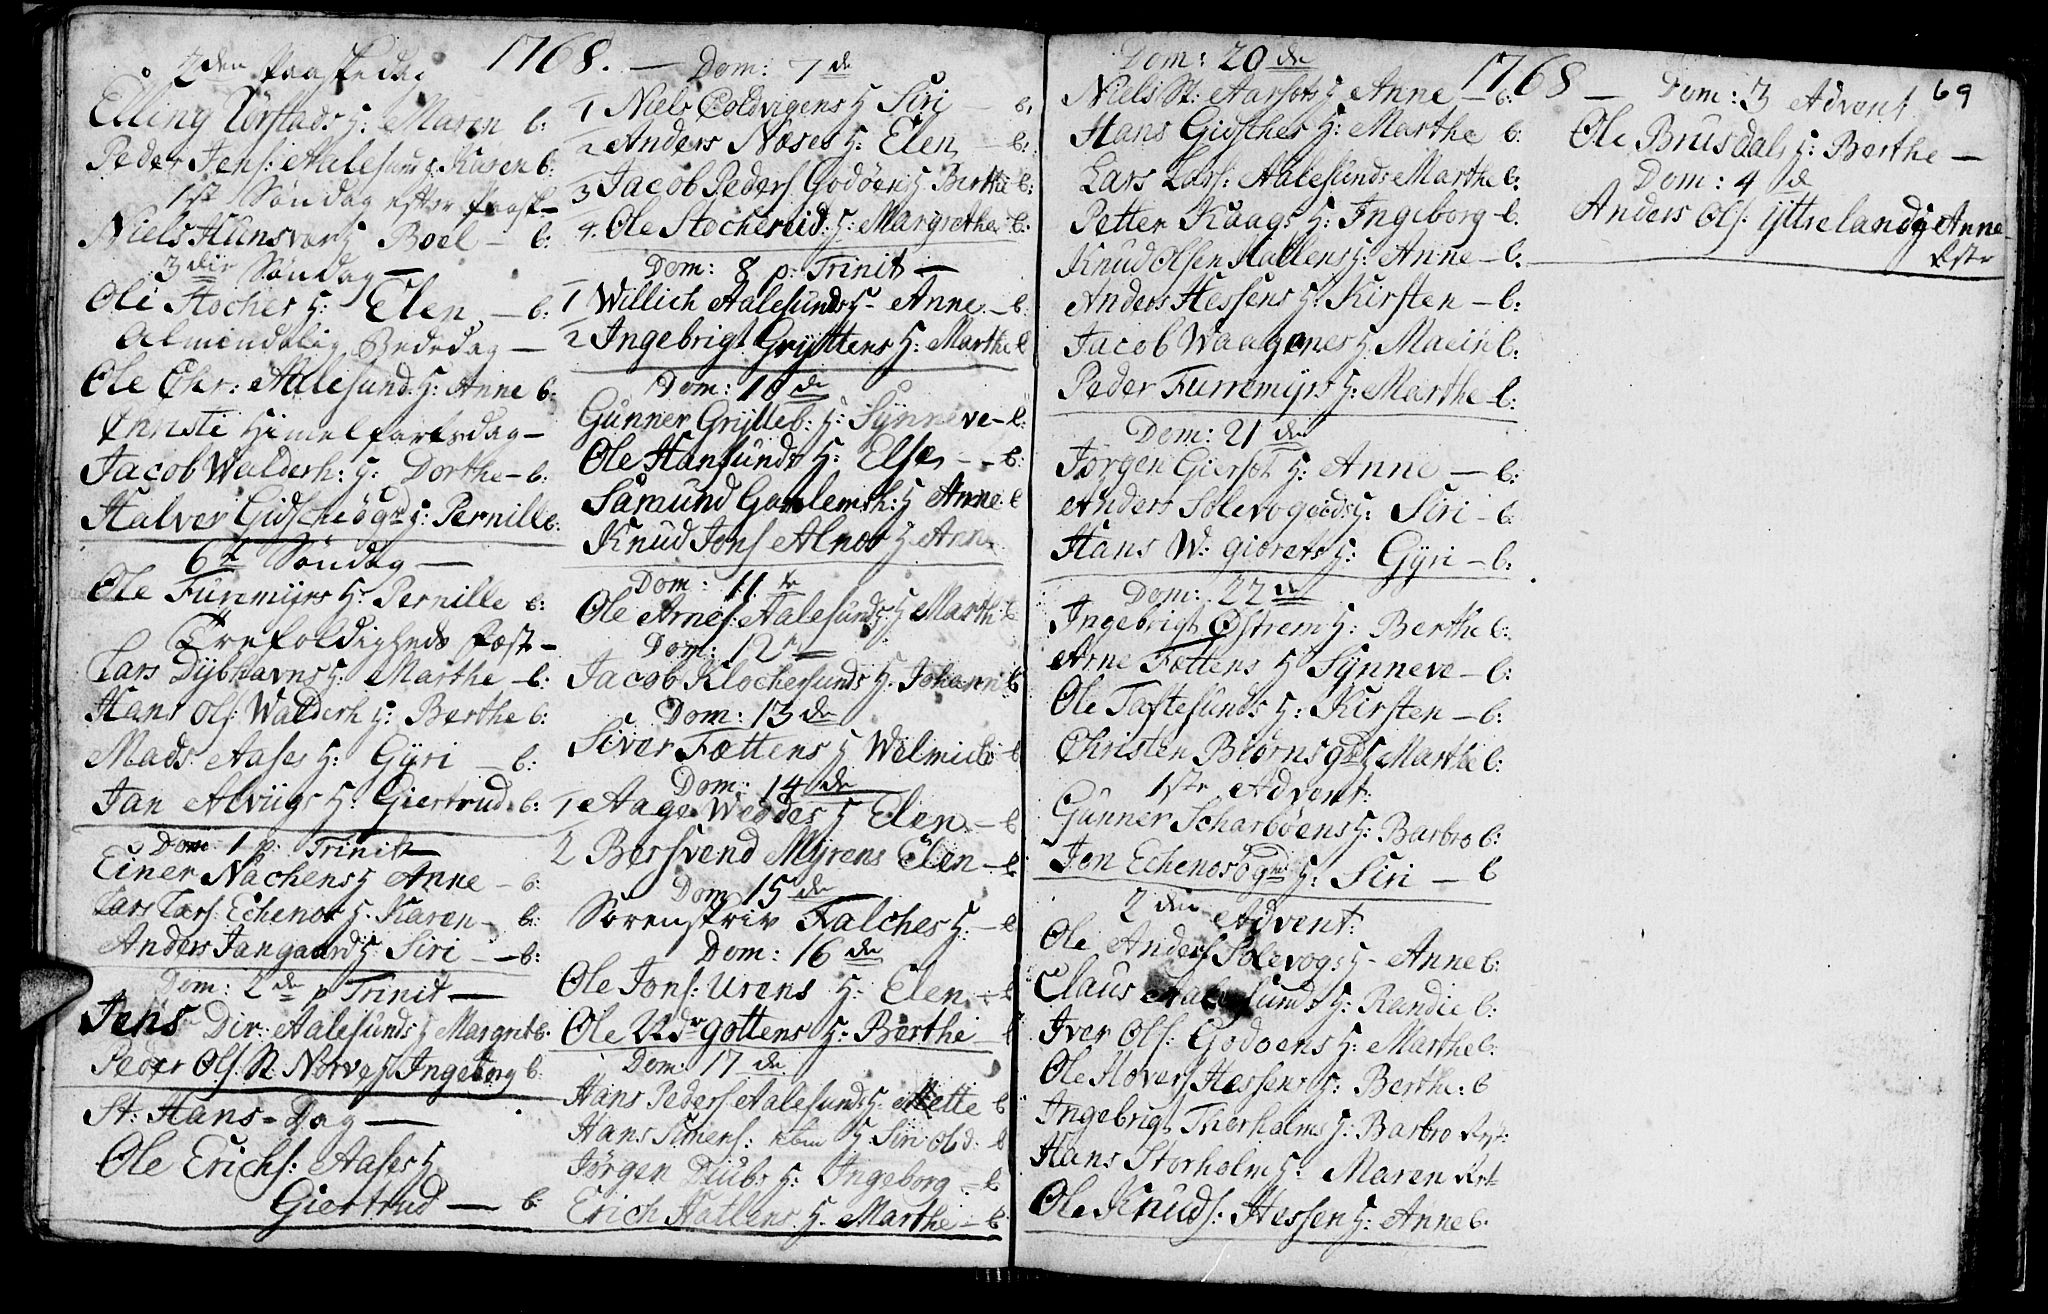 1768. —
2den Paaskedag
Elling Törstads H: Maren b:
Peder Jens: Aalesund H. Karen b:
1ste Söndag efter Paaske
Niels Hunsvar H Boel — b:
3die Söndag —
Ole Stoches H: Elen — b:
Almindelig Bededag —
Ole Chr: Aalesund. H: Anne b:
Christi Himelfartsdag —
Jacob Walderh: H: Dorthe — b:
Halver Gidsche H: Pernille b:
6te Söndag —
Ole Furmyrs H: Pernille b:
Trefoldigheds Fæst —
Lars Dybhavns H: Marthe — b:
Hans Ols: Walderh H: Berthe b:
Mads Aases H: Gÿri — b:
Jan Alviigs H: Giertrud b:
Dom 1 p: Trinit —
Einer Nachens H Anne — b:
Lars Lars: Echenos H: Karen — b:
Anders Jangaard H Siri — b:
Dom: 2de p Trinit —
Jens Dir: Aalesunds H Margret b:
Peder Ols. St. Norves H Ingeborg b:
St: Hans = Dag —
Ole Erichs: Aases H
Giertrud — b:
Dom: 7de
1 Niels Coldvigens H Siri — b:
2 Anders Næses H: Elen — b:
3 Jacob Peders Godöens H Berthe b:
4. Ole Stochereid: H: Margrethe b:
Dom: 8 p: Trinit —
1 Willich Aalesunds H- Anne — b:
2 Ingebrigt Gryttens H: Marthe b
Dom: 10de
Gunner Grytteb: H: Synneve — b:
Ole Hansunds H: Else — b:
Samund Gaslemsh: H Anne b
Knud Jons Alnos H Anne
Dom: 11te
Ole Arnes: Aalesunds H Marthe b
Dom: 12te
Jacob Klochersunds H. Johanne b
Dom: 13de
Siver Fættens H Welmiche b
Dom: 14de
1 Aage Weddes H Elen — b
2 Bersvend Myrens Elen — b
Dom 15de
Sorenskriv Falches H: — b
Dom: 16de
Ole Jons: Urens H: Elen — b
Ole Ndr gottens H: Berthe — b
Dom: 17de
Hans Peders Aalesunds H: Mette b
Hans Simens: H: Siri Olsd: b
Jörgen Dubs H: Ingeborg — b
Erich Hatlens H. Marthe — b
1768 —
69
Dom: 20de
Niels St: Aarsets H Anne — b:
Hans Gidsches H: Marthe b:
Lars Lars: Aalesunds Marthe b:
Petter Kaags H: Ingeborg — b.
Knud Olsen Hallens H: Anne — b:
Anders Hessens H: Kirsten — b:
Jacob Waagenes H Maein b:
Peder Furremyrs H: Marthe b:
Dom: 21de
Jörgen Giersets H: Anne — b:
Anders Solevogöds H: Siri — b:
Hans W: giörets H: Gÿri — b:
Dom: 22de
Ingebrigt Östrems H: Berthe b:
Arne Fættens H Synneve — b:
Ole Taftesunds H: Kirsten — b:
Christen Biörns H Marthe b:
1ste Advent:
Gunner Scharböens H: Barbro b:
Jon Echenos H: Siri — b
2den Advent:
Ole Anders Solevogs H- Anne b:
Claus Aalesunds H: Randie b:
Iver Ols: Godoens H: Marthe b:
Ole Hovers Hessens H: Berthe: b
Ingebrigt Thorholms H: Barbro
Hans Storholms H: Maren
Ole Knuds: Hessen H: Anne b:
Dom: 3 Advent
Ole Brusdals H: Berthe —
Dom: 4de
Anders Ols: Yttreland H Anne